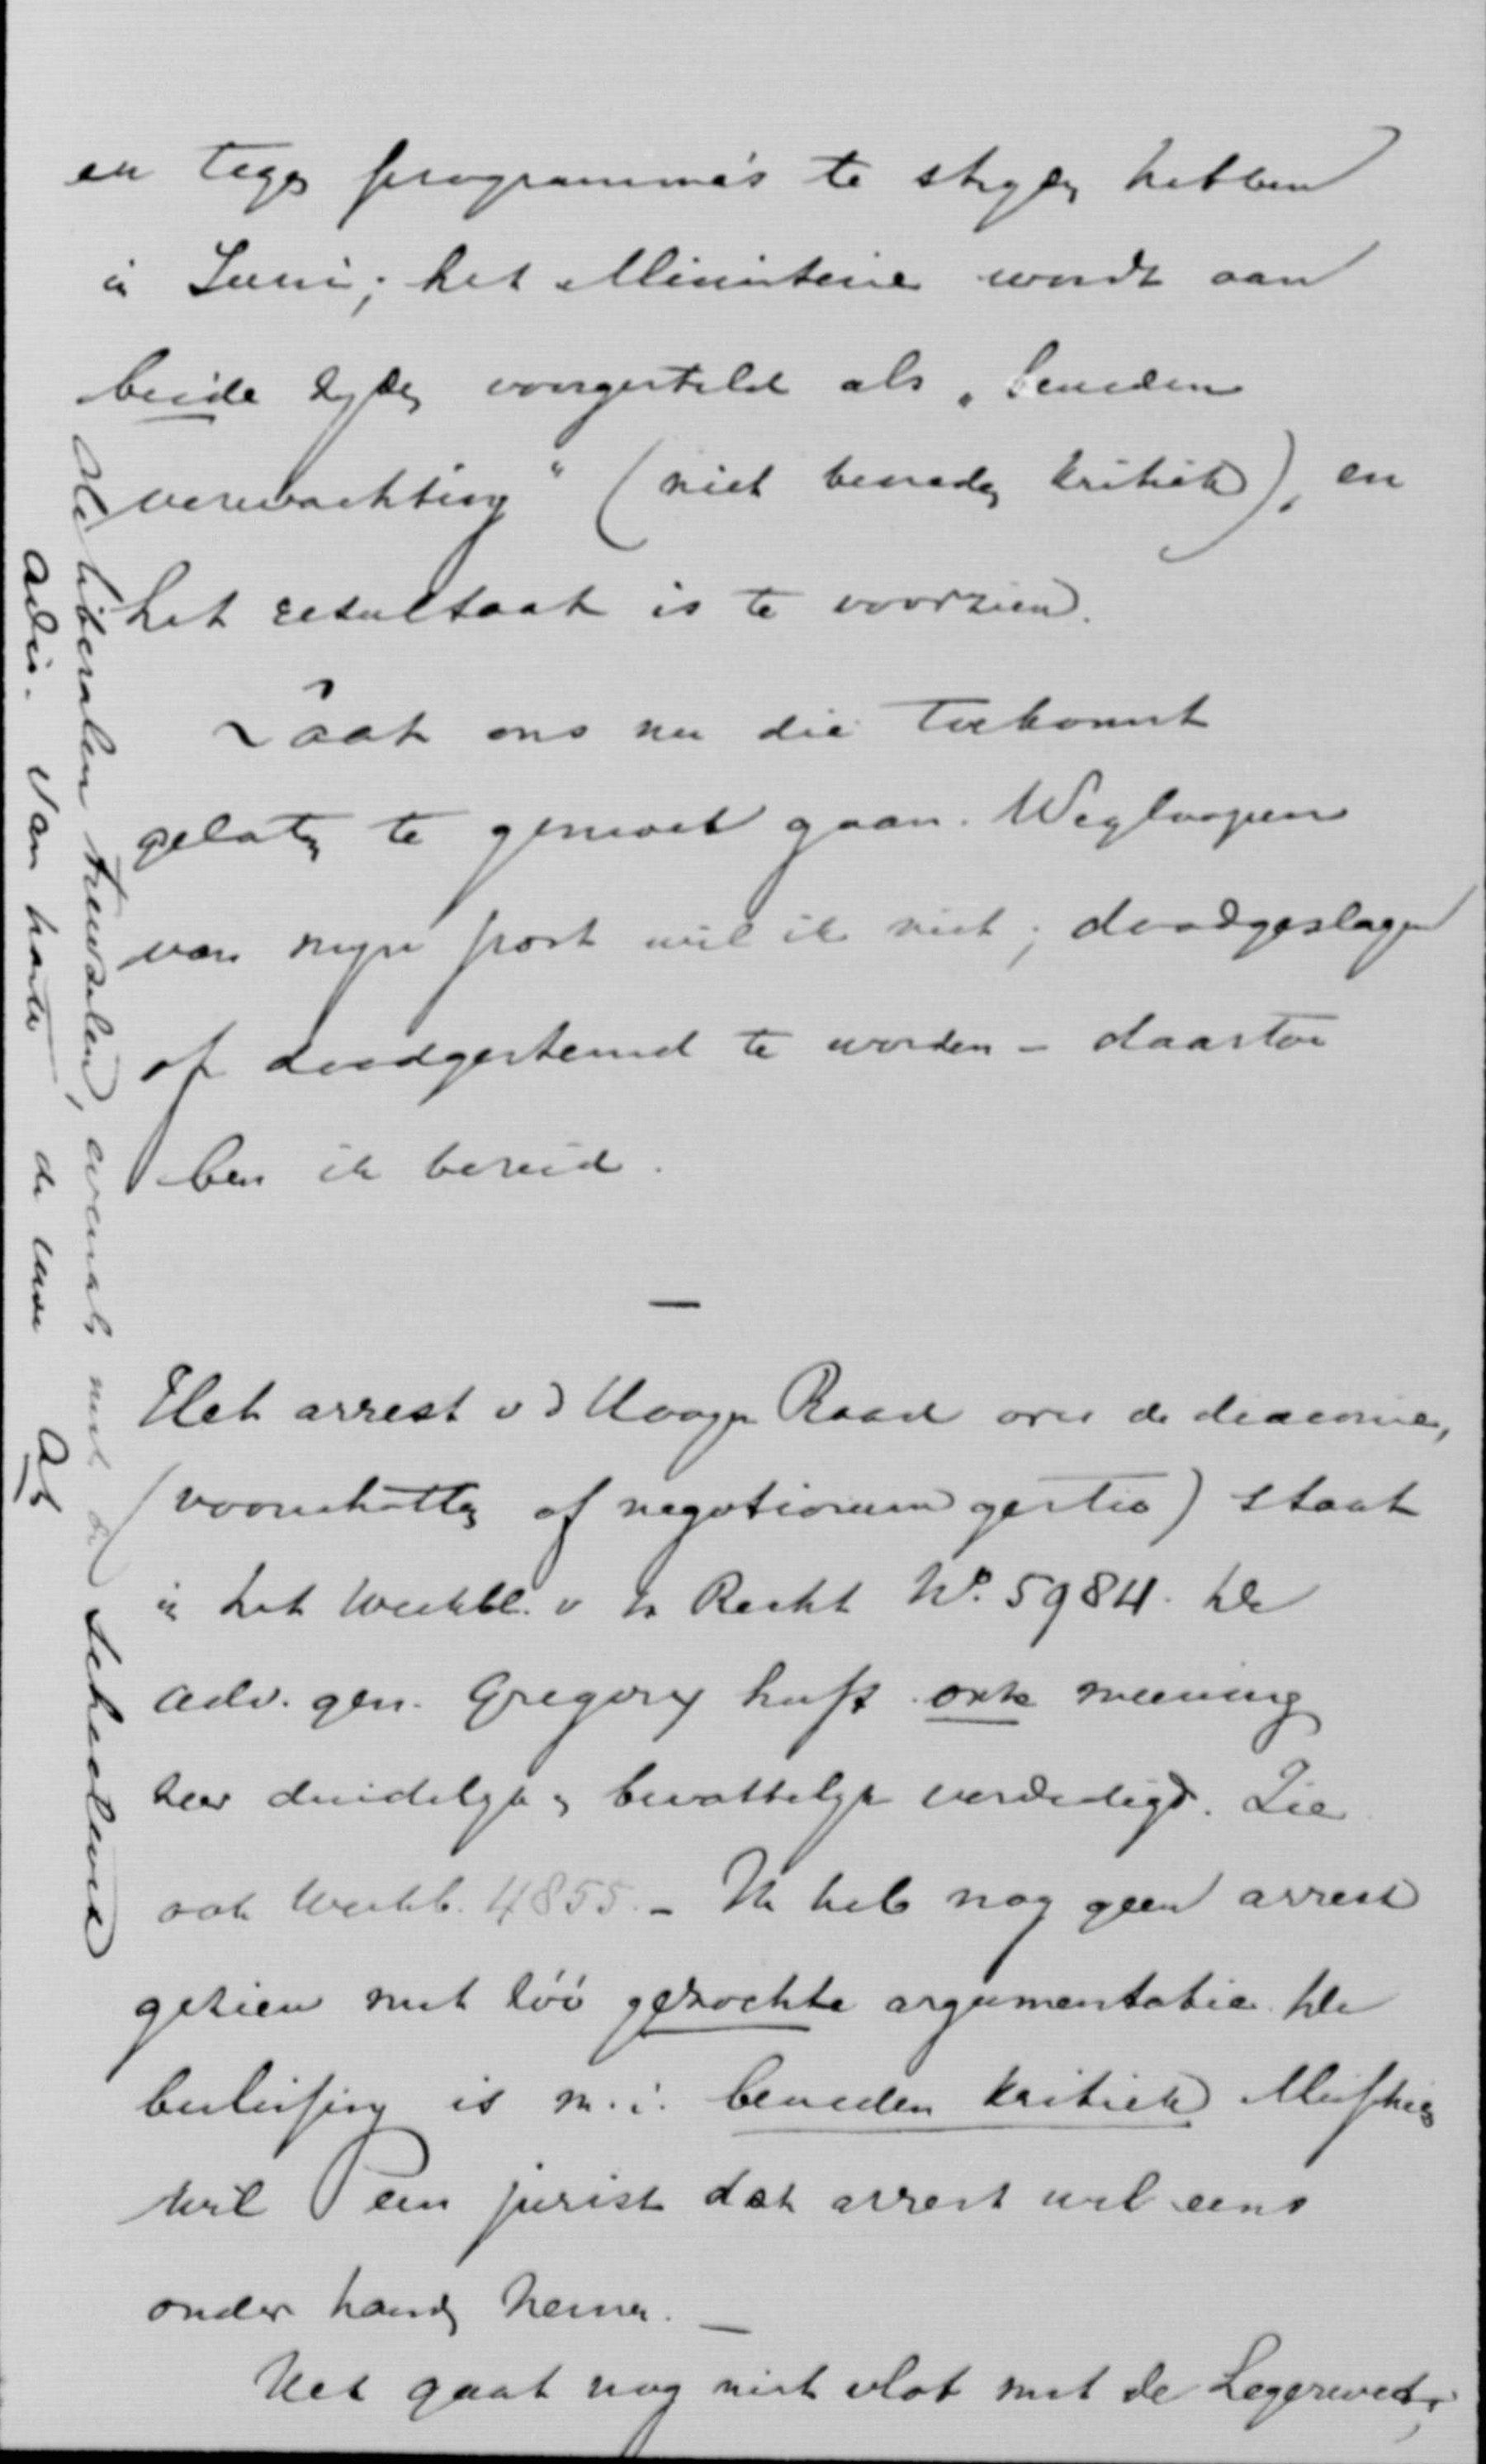 en tegen programma's te strijden hebben
in Juni; het Ministerie wordt aan
beide zijden voorgesteld als „beneden
verwachting" (niet beneden kritiek), en
het resultaat is te voorzien.
Laat ons nu die toekomst
gelaten te gemoet gaan. Wegloopen
van mijn post wil ik niet; doodgeslagen
of doodgestemd te worden - daartoe
ben ik bereid.
—
Het arrest v d Hoogen Raad over de diaconie,
(voorschotten of negotiorum gestio) staat
in het Weekbl. v h Recht No. 5984. De
adv. gen. Gregory heeft onze meening
zeer duidelijk en bevattelijk verdedigd. Zie
ook Weekbl. 4855. - Ik heb nog geen arrest
gezien met zóó gezochte argumentatie. De
beslissing is m.i. beneden kritiek. Misschien
wil een jurist dat arrest wel eens
onder handen nemen. —
Het gaat nog niet vlot met de Legerwet;
de liberalen treuzelen, evenals met de Schoolwet
adio. Van harte de uwe